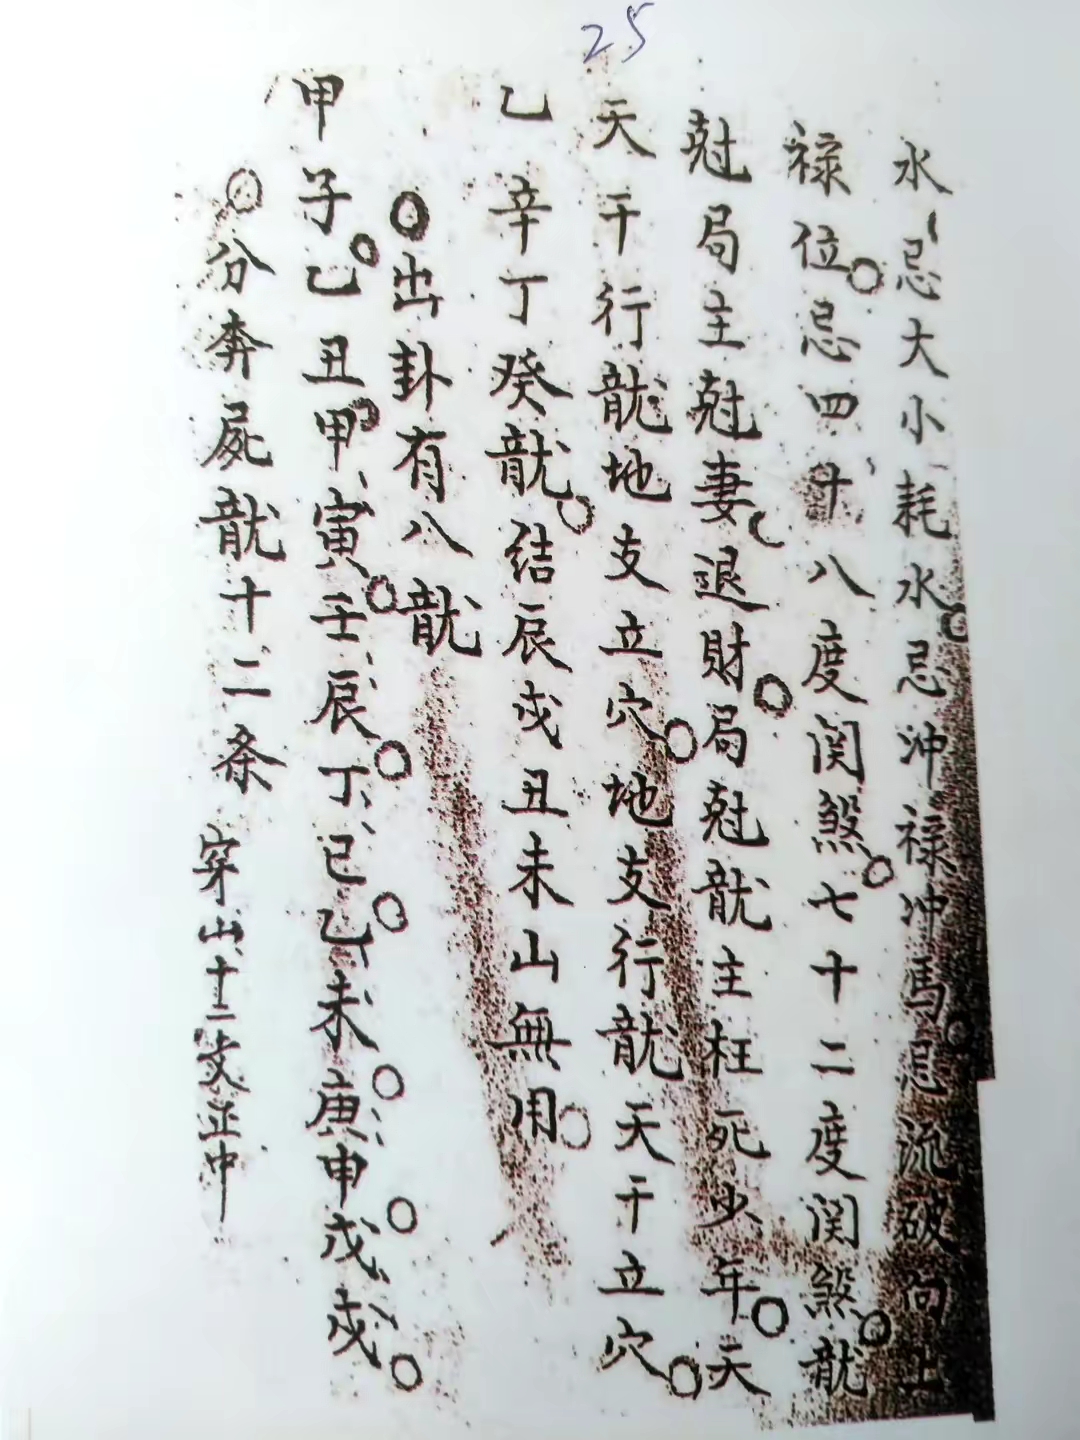 25
水忌大小耗水忌沖禄沖馬忌流破向上
禄位忌四十八度関煞七十二度関煞龍
尅局主尅妻退財局尅龍主枉死少年天
天干行龍地支立穴地支行龍天干立穴
乙辛丁癸龍結辰戌丑未山無用
出卦有八龍
甲子乙丑甲寅壬辰丁巳乙未庚申戊戌
分奔屍龍十二条 穿山十二支正中